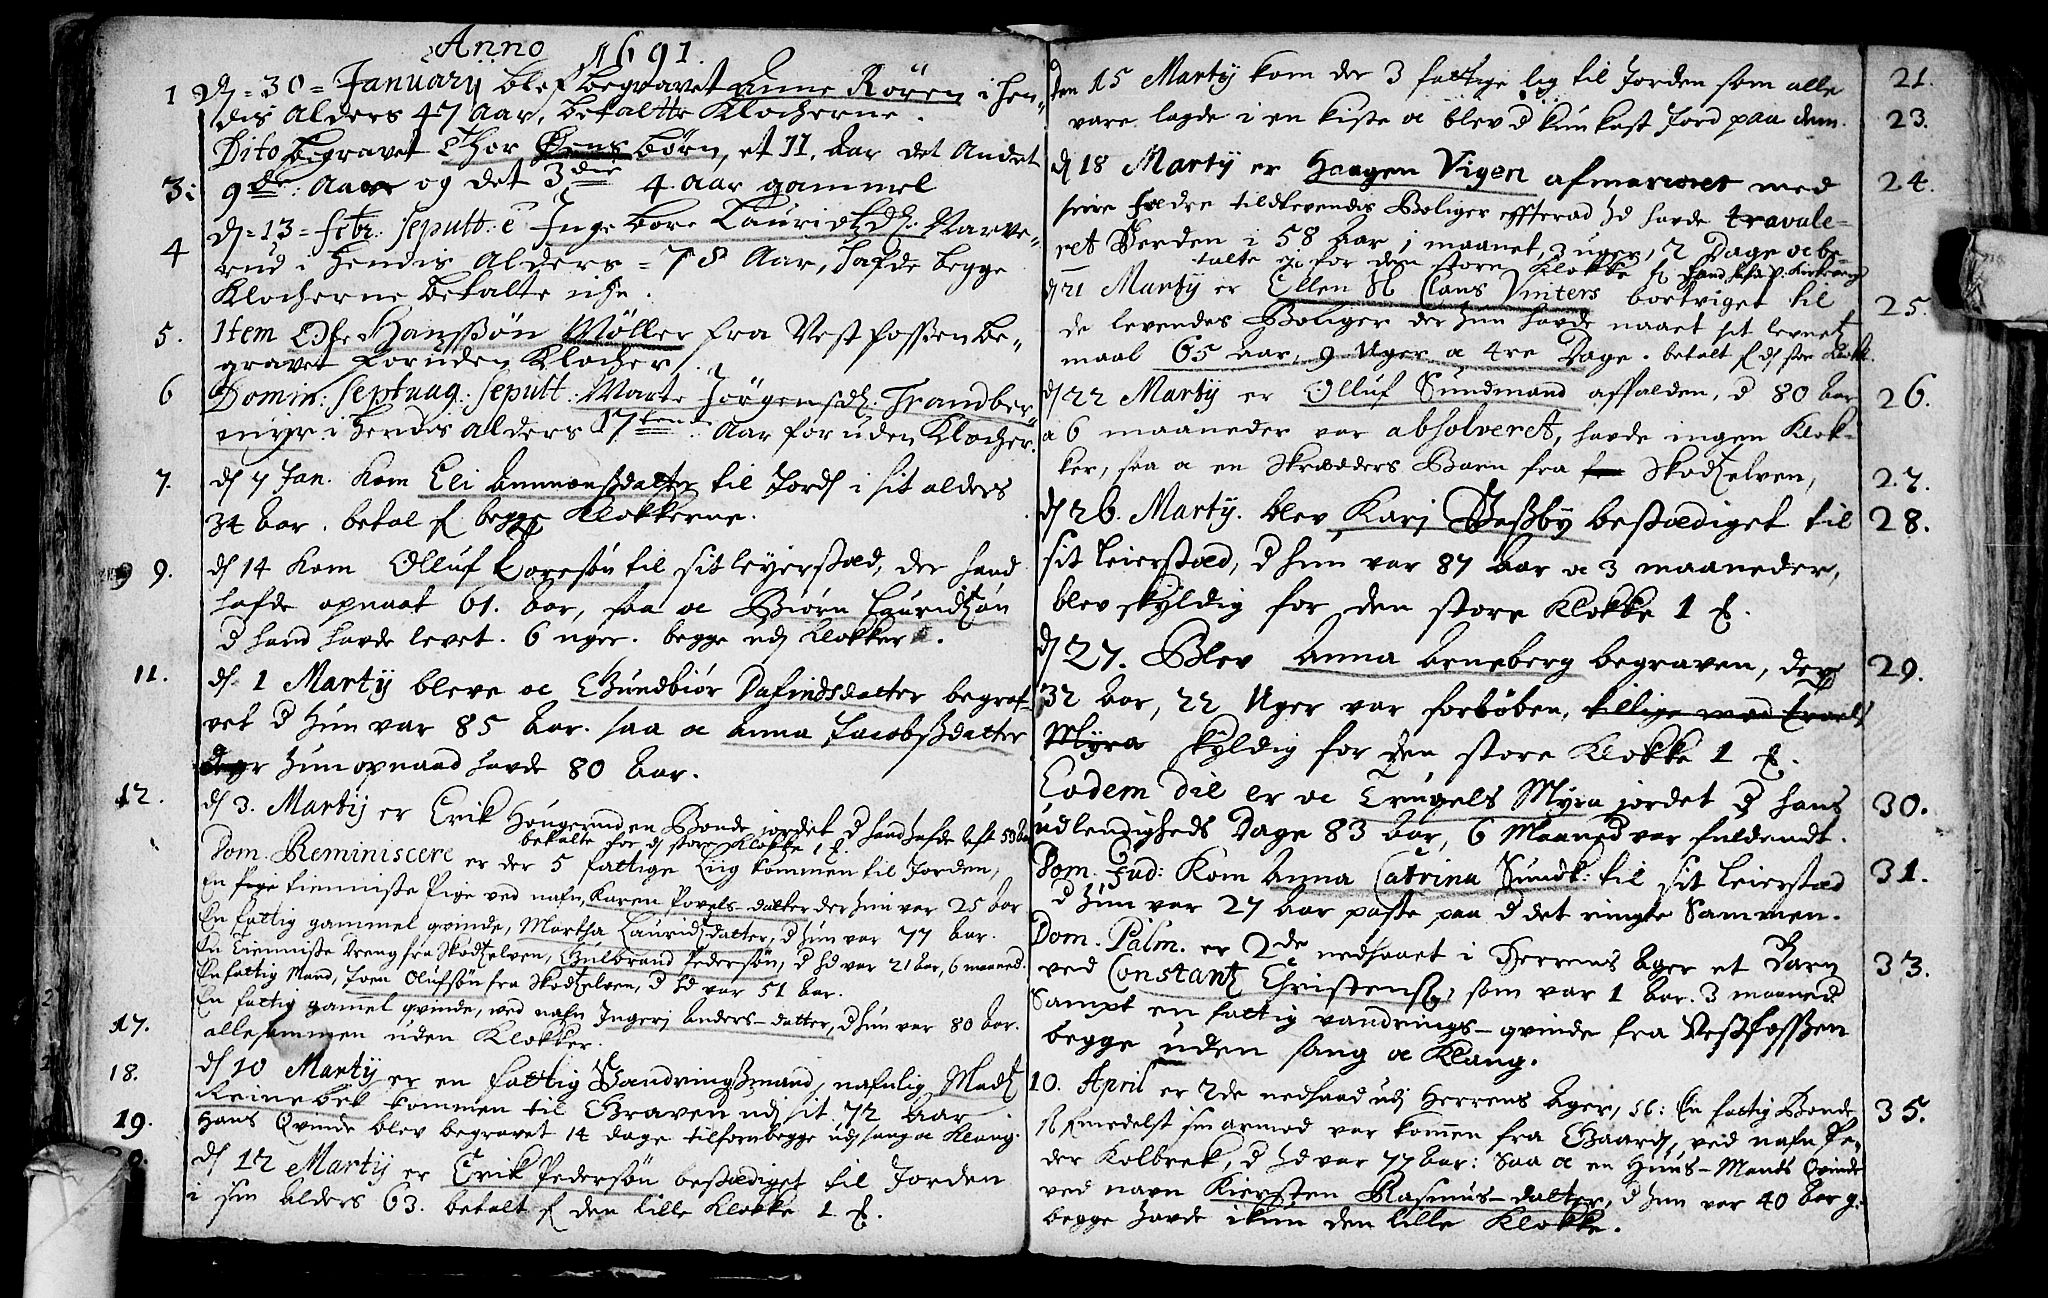 Anno 1691.
1 D. 30 = January blef begravet Anne Rören i hen-
dis Alders 47 Aar, betaltte Klocherne.
Dito begravet Thor Öens börn, et 11. Aar det Andet
3: 9de: Aar og det 3die 4 aar gammel
4 D. 13 = febr: seputt: e Inge bore Lauridtzd: Narve-
rud i hendis Alders = 78 Aar, hafde begge
Klocherne betalte
5. Item Hanssön Möller fra Vestfossen be-
gravet foruden Klocher.
6 Domin: septuag: seputt: Marte Jörgensd: Trandber-
myr i hendis alders 17ten Aar foruden Klocher.
7. d 7 Jan. Kom Eli Ammonsdatter til Jord i sit alders
34 Aar. betal f begge Klokkerne.
9 9. d 14 Kom Olluf Toresøn til sit leyerstæd, der hand
hafde opnaat 61. Aar, saa oc Biörn Lauridtzön
d hand havde levet. 6 uger. begge ud Klokker.
11. d. 1 Martij bleve oc Gundbiör Dafindsdatter begraf-
vet d hun var 85 Aar. saa oc Anna Jacobsdatter
hun opnaad havde 80 Aar.
12. d 3. Martij er Erik Hougerud en Bonde jordet d hand hafde left 59 Aar
betalte for d store Klokke 1 f.
Dom. Reminiscere er der 5 fattige Liig kommen til Jorden,
En tienniste Pige ved nafn, Karen Povels-datter der hun var 25 Aar
En fattig gammel qvinde, Martha Lauridtzdatter, d hun var 77 Aar.
En Tienniste Dreng fra Skodtzelven, Gulbrand Pedersön, d hd var 21 Aar, 6 maaned.
En fattig Mand, Joen Olufsön fra Skodtzelven, d hd var 51 Aar.
En fattig gamel qvinde, ved nafn Ingerj Anders-datter, d hun var 80 Aar.
17. allesammen uden Klokker.
18. d 10 Martij er en fattig Vandringsmand, nafnlig Madtz
Reinebek kommen til Graven udj sit 72 Aar
19. Hans Qvinde blev begravet 14 dage tilforn begge ud sang oc Klang.
20. d 12 Martij er Erik Pedersön bestædiget til Jorden
i sin Alders 63. betalt f den lille Klokke 1 f.
Den 15 Martij kom der 3 fattige lig til Jorden som alle 21.
vare lagde i en kiste oc blev d kun kast Jord paa dem. 23.
d 18 Martij er Haagen Vigen afmarceret med 24.
seire Fædre tildlevendis Boliger effterad hd havde travale-
ret Verden i 58 Aar 1 maanet, 3 uger, 2 Dage oc be-
talte for den store Klokke
d 21 Martij er Ellen Sl Clans Vinters bortviget til 25.
de levendes Boliger der hun havde naaet sit levnetz
maal 65 Aar, 9 Uger oc 4re Dage. betalt f d stor Klokk.
d 22 Martij er Olluf Sundmand affalden, d 80 Aar 26.
a 6 maaneder var absolveret, havde ingen Klok-
ker, saa oc en Skrædders Barn fra Skodtzelven, 27.
d 26. Martij. blev Karj Basby bestædiget til 28.
sit leierstæd, d hun var 87 Aar oc 3 maaneder,
blev skyldig for den store Klokke 1 f.
d 27. Blev Anna Arneberg begraven, der 29.
32 Aar, 22 Uger var forløben, tillige med Troels
Myra skyldig for den store Klokke 1 f.
Eodem Die er oc Trugels Myra jordet d hans 30.
udlendigheds Dage 83 Aar, 6 Maaned var fuldendt.
Dom. Jud: Kom Anna Catrina Sundt: til sit leierstæd 31.
d hun var 27 Aar paste paa d det ringte Sammen.
Dom. Palm. er 2de nedsaaet i Herrens Ager et Barn
ved Constantz Christens, som var 1 Aar. 3 maaned 33.
Sampt en fattig vandrings-qvinde fra Vestfossen
begge uden sang oc Klang.
10. April er 2de nedsaad udj Herrens Ager, : En fattig Bonde,
sk formedelst sin armod var kommen fra Gaard, ved nafn Pe- 35.
der Kolbrek, d hd var 77 Aar: Saa oc en Huus-Mands Qvinde
ved navn Kiersten Rasmus-datter, d hun var 40 Aar g:
begge havde ikun den lille Klokke.